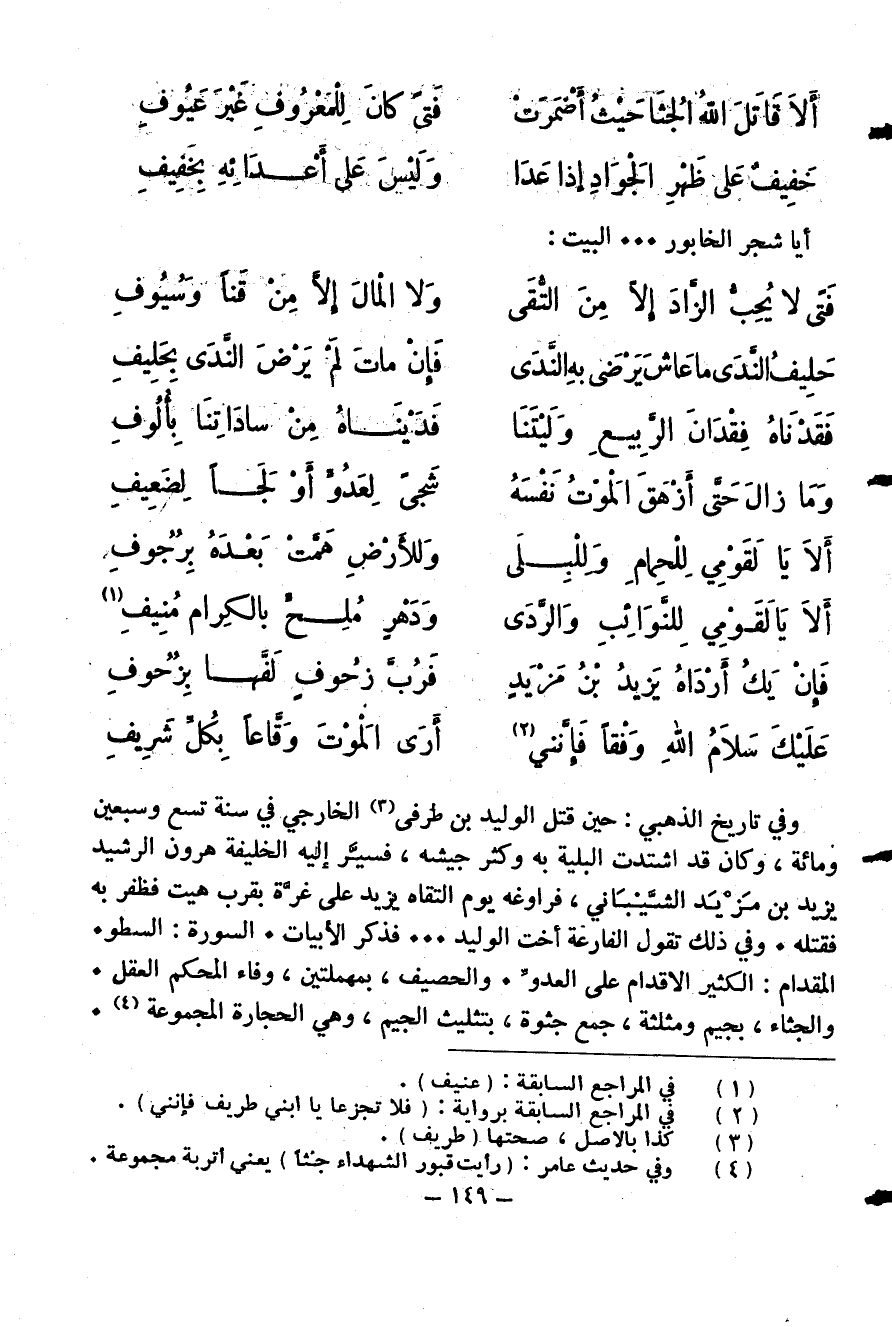 أَلاَ قَاتَلَ اللهُ الجُثَا حَيْثُ أَضْمَرَتْ فَتىً كانَ لِلْمَعْرُوفِ غَيْرَ عَيُوفِ
خَفِيفٌ عَلى ظَهْرِ الجْوَادِ إذا عَدَا وَلَيْسَ عَلى أَعْـدَائِهِ بِخَفِيفِ
أيا شجر الخابور ٠٠٠ البيت :
فَتَى لا يُحِبُّ الزَّادَ إلاَّ مِنَ التُّقَى وَلا المْالَ إلاَّ مِنْ قَناً وَسُيُوفِ
حَلِيفُ النَّدَى ما عَاشَ يَرْضَى بِهِ النَّدَى فَإِنْ ماتَ لَمْ يَرْضَ النَّدَى بِحَلِيفِ
فَقَدْنَاهُ فِقْدَانَ الرَّبِيعِ وَلَيْتَنَا فَدَيْنَـاهُ مِنْ سادَاتِنَا بِأُلُوفِ
وَمَا زالَ حَتَّى أَزْهَقَ المْوْتُ نَفْسَهُ شَجىً لِعَدُوٍّ أَوْ لَجَـاً لِضَعِيفِ
أَلاَ يَا لَقَوْمِي لِلْحِمامِ وَلِلْبِـلَى وَلِلأَرْضِ هَمَّتْ بَعْدَهُ بِرُجُوفِ
أَلاَ يَا لَقَوْمِي لِلنَّوَائِبِ وَالرَّدَى وَدَهْرٍ مُلِـحٍّ بالكِرامِ مُنِيفِ (١)
فَإِنْ يَكُ أَرْدَاهُ يَزِيدُ بْنُ مَزْيَدٍ فَرُبَّ زحُوفٍ لَفَّهـا بِزُحُوفِ
عَلَيْكَ سَلاَمُ اللهِ وَقْفاً فَإِنَّني (٢) أَرَى المْوْتَ وَقَّاعاً بِكُلِّ شَرِيفِ
وفي تاريخ الذهبي : حين قتل الوليد بن طرفى (٣) الخارجي في سنة تسع وسبعين
ومائة ، وكان قد اشتدت البلية به وكثر جيشه ، فسيَّر إليه الخليفة هرون الرشيد
يزيد بن مَزْيَد الشَّيْبَاني ، فراوغه يوم التقاه يزيد على غرَّة بقرب هيت فظفر به
فقتله ٠ وفي ذلك تقول الفارعة أخت الوليد ٠٠٠ فذكر الأبيات ٠ السورة : السطو٠
المقدام : الكثير الاقدام على العدوّ ٠ والحصيف ، بمهملتين ، وفاء المحكم العقل ٠
والجثاء ، بجيم ومثلثة ، جمع جثوة ، بتثليث الجيم ، وهي الحجارة المجموعة (٤) ٠
(١) في المراجع السابقة : (عنيف) ٠
(٢) في المراجع السابقة برواية : (فلا تجزعا يا ابني طريف فإنني) ٠
(٣) كذا بالاصل ، صحتها (طريف) ٠
(٤) وفي حديث عامر : (رأيت قبور الشهداء جثاً) يعني أتربة مجموعة ٠
– ١٤٩ –